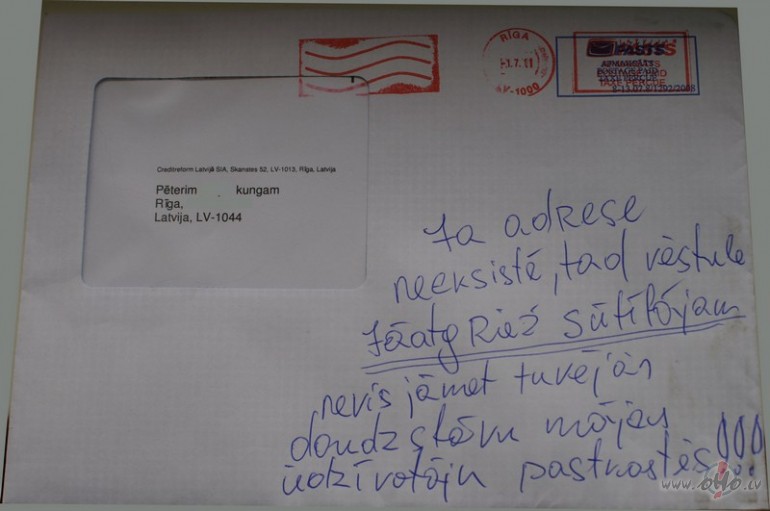 RĪGA
PASTS
-1.7.11
APMAKSĀTS
POSTAGE PAID
TAXE PERCUE
LV-1000
Creditreform Latvijā SIA, Skanstes 52, LV-1013, Rīga, Latvija
Pēterim kungam
Rīga,
Latvija, LV-1044
Ja adrese
neeksistē, tad vēstule
jāatgRiež sūtītājam
nevis jāmet tuvējās
daudzstāvu mājas
iedzīvotāju pastkastēs!!!
www.olllo.lv